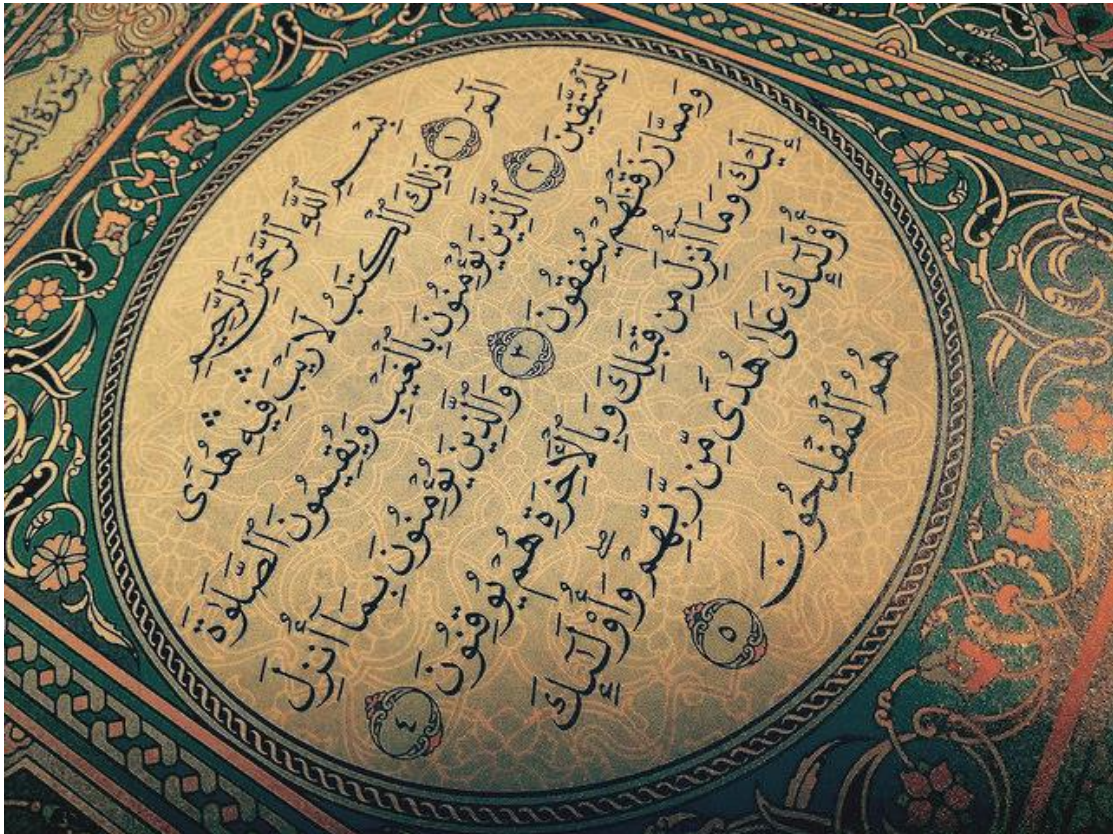 سُورَةُ الْبَ
بِسْمِ ٱللَّهِ ٱلرَّحْمَٰنِ ٱلرَّحِيمِ
الٓمٓ ١ ذَٰلِكَ ٱلْكِتَٰبُ لَا رَيْبَ ۛ فِيهِ ۛ هُدًى
لِّلْمُتَّقِينَ ٢ ٱلَّذِينَ يُؤْمِنُونَ بِٱلْغَيْبِ وَيُقِيمُونَ ٱلصَّلَوٰةَ
وَمِمَّا رَزَقْنَٰهُمْ يُنفِقُونَ ٣ وَٱلَّذِينَ يُؤْمِنُونَ بِمَآ أُنزِلَ
إِلَيْكَ وَمَآ أُنزِلَ مِن قَبْلِكَ وَبِٱلْأَخِرَةِ هُمْ يُوقِنُونَ ٤
أُو۟لَٰٓئِكَ عَلَىٰ هُدًى مِّن رَّبِّهِمْ ۖ وَأُو۟لَٰٓئِكَ
هُمُ ٱلْمُفْلِحُونَ ٥